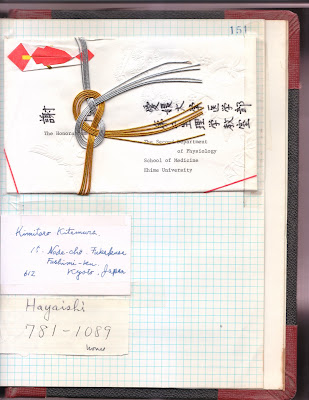 151
謝
愛媛大学医学部
第二生理学教室
The Honora
The Second Department
of Physiology
School of Medicine
Ehime University
Kimitaro Kitamura,
Fukakusa
Fushimi-ku,
612 Kyoto, Japan
Hayaishi
781-1089